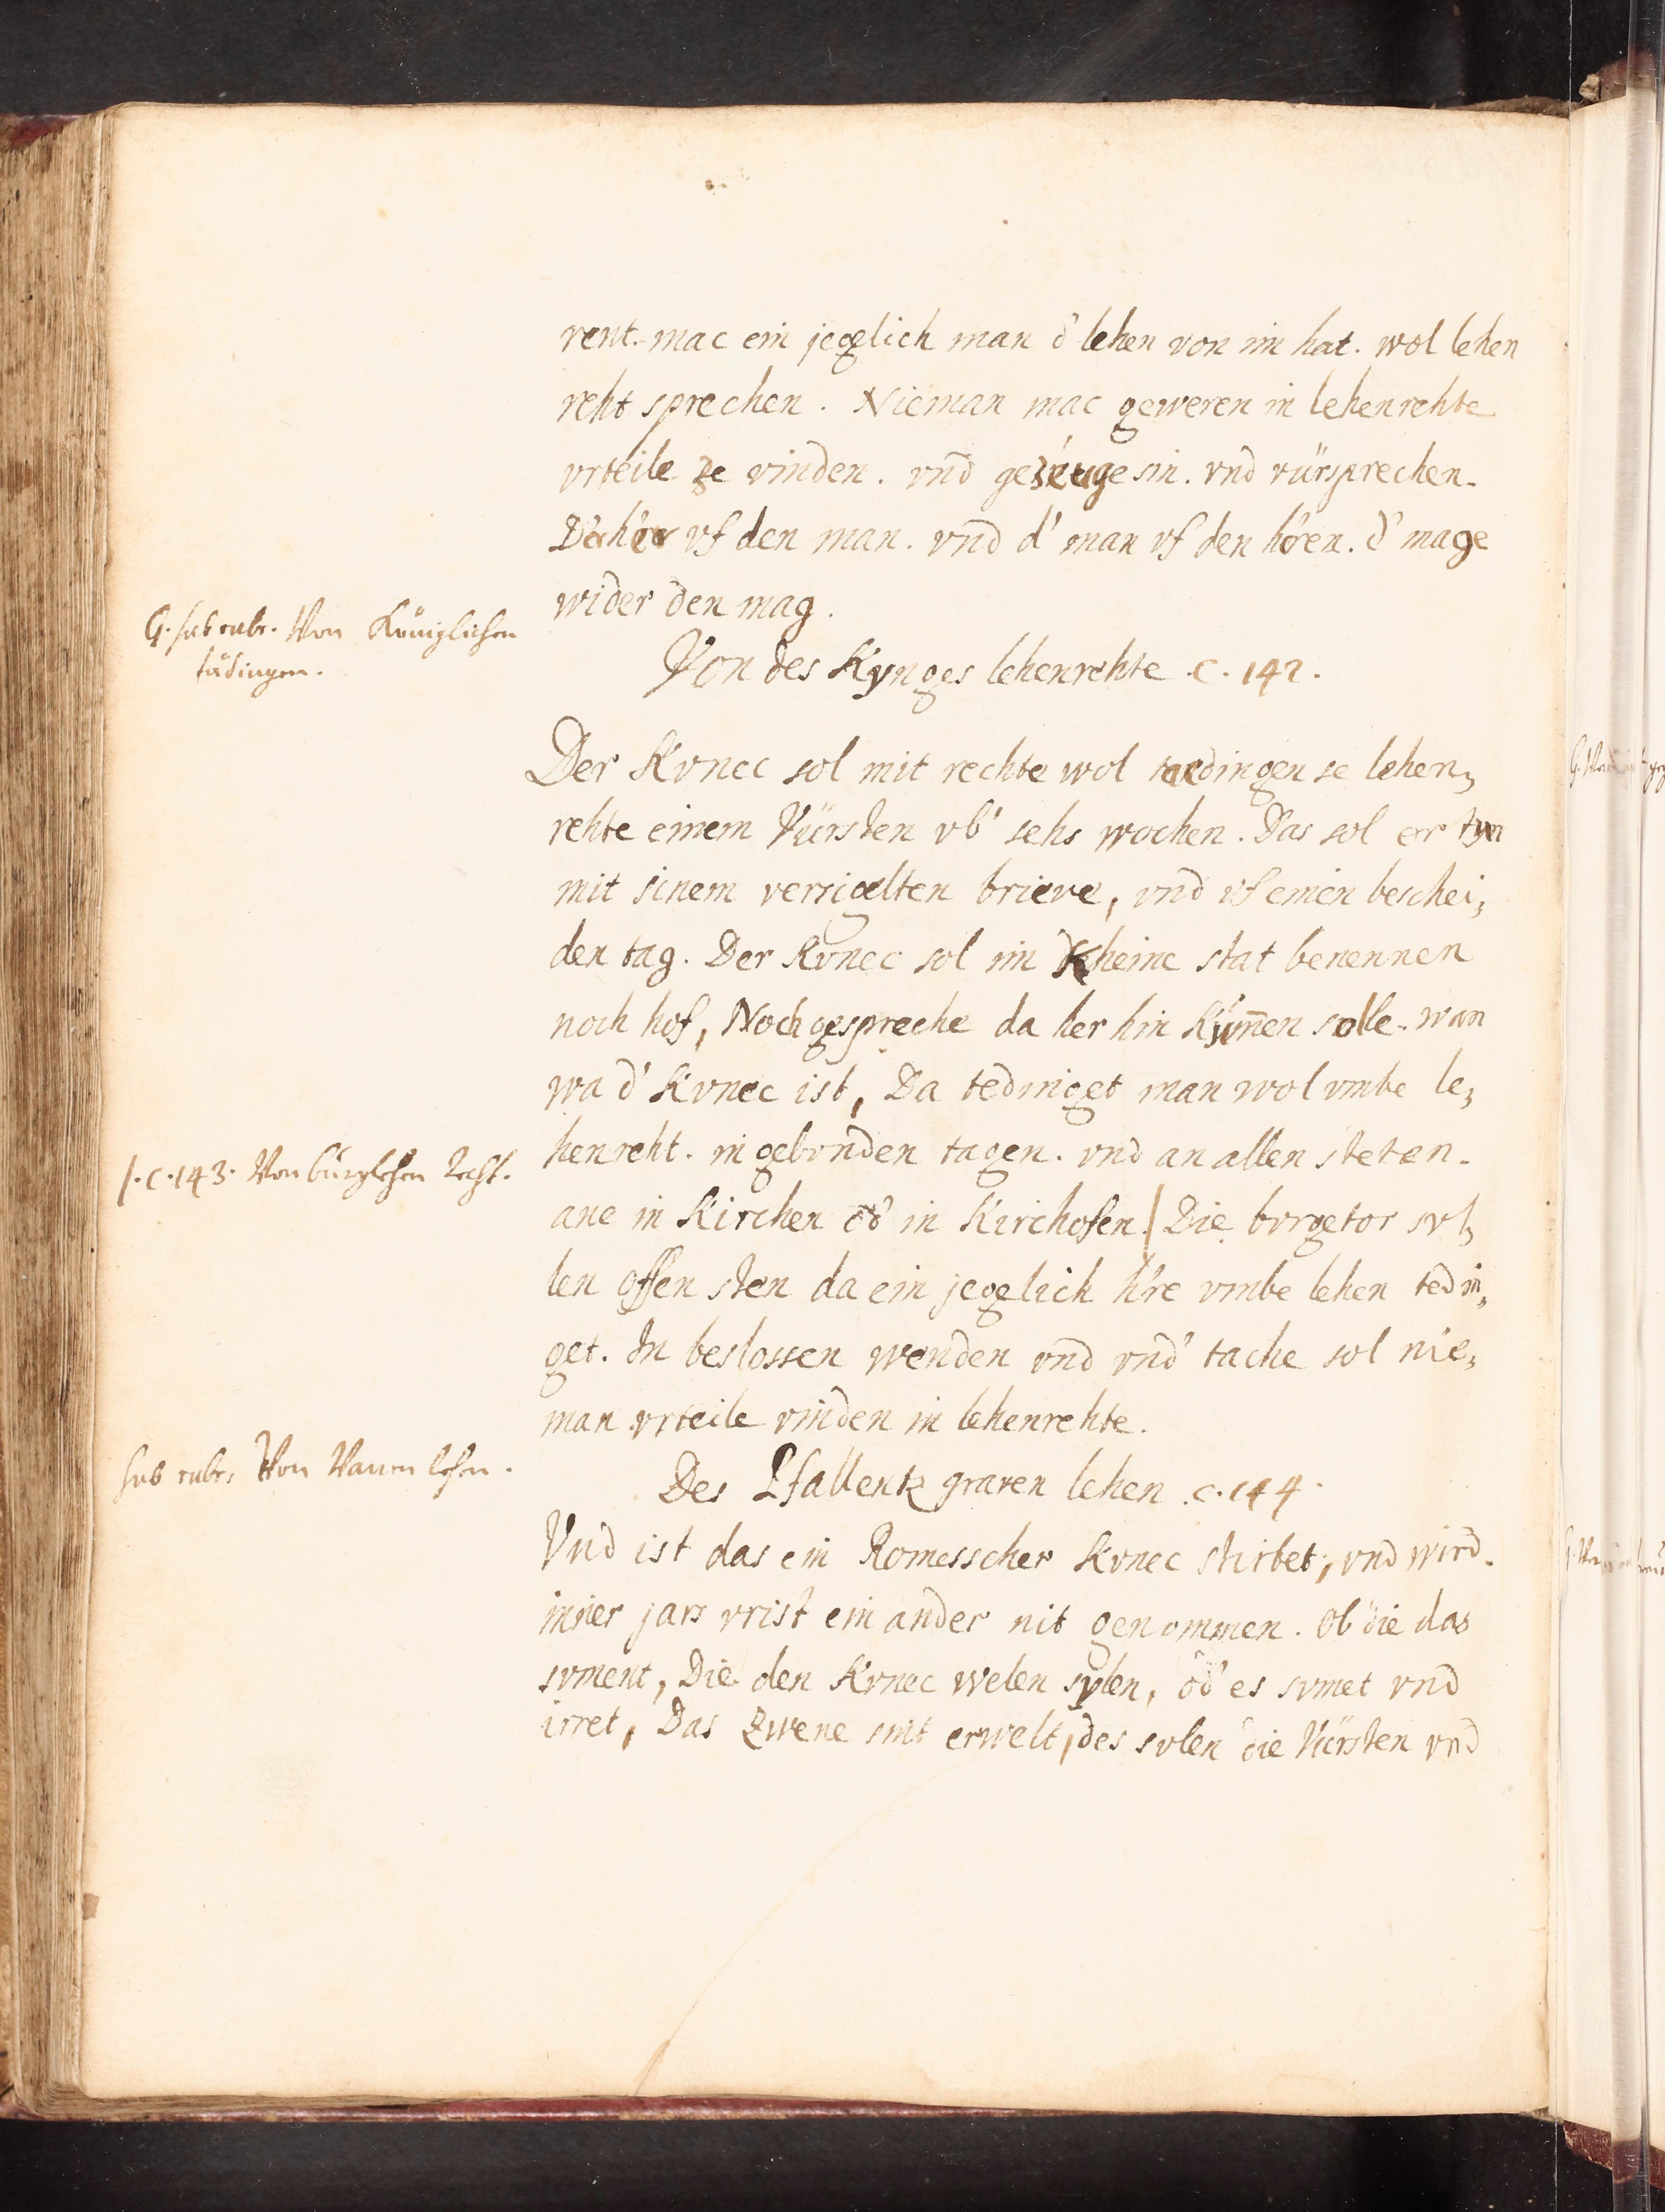 rent. mac ein jegelich man d' lehen von im hat. wol lehen
reht sprechen. Nieman mac geweren in lehenrehte
vrteile ze vinden. vnd gezeuge sin. vnd vürsprechen.
vf den man. vnd d' man vf den h'ren. d' mage
wider den mag.
G. sub rubr. Von Königlichen
tädingen.
Von des Kynges lehenrehte .c. 142.
Der Kvnec sol mit rechte wol taedingen se lehen,
rehte einem Vürsten vb' sehs wochen. Das sol er tyn
mit sinem versigelten brieve, vnd vf einen beschei,
den tag. Der Kvnec sol im dKheine stat benennen
noch hof, Noch gespreche da her hin Kümen solle. wan
wa d' Kvnec ist, Da tedinget man wol vmbe le,
henreht. in gebvnden tagen. vnd an allen steten.
|. c. 143. Von burglehen Recht.
ane in Kirchen od' in Kirchofen.| Die bvrgetor svl,
len offen sten da ein jegelich h're vmbe lehen tedin,
get. In beslossen wenden vnd vnd' tache sol nie,
man vrteile vinden in lehenrehte.
sub rubr. Von Vanen lehen.
Des Pfallentz graven lehen .c. 144.
Vnd ist das ein Romesscher Kvnec stirbet, vnd wird.
inner jars vrist ein ander nit genommen. Ob die das
svment, Die den Kvnec welen sylen, od' es svmet vnd
irret, Das zwene sint erwelt, des svlen die Vürsten vnd